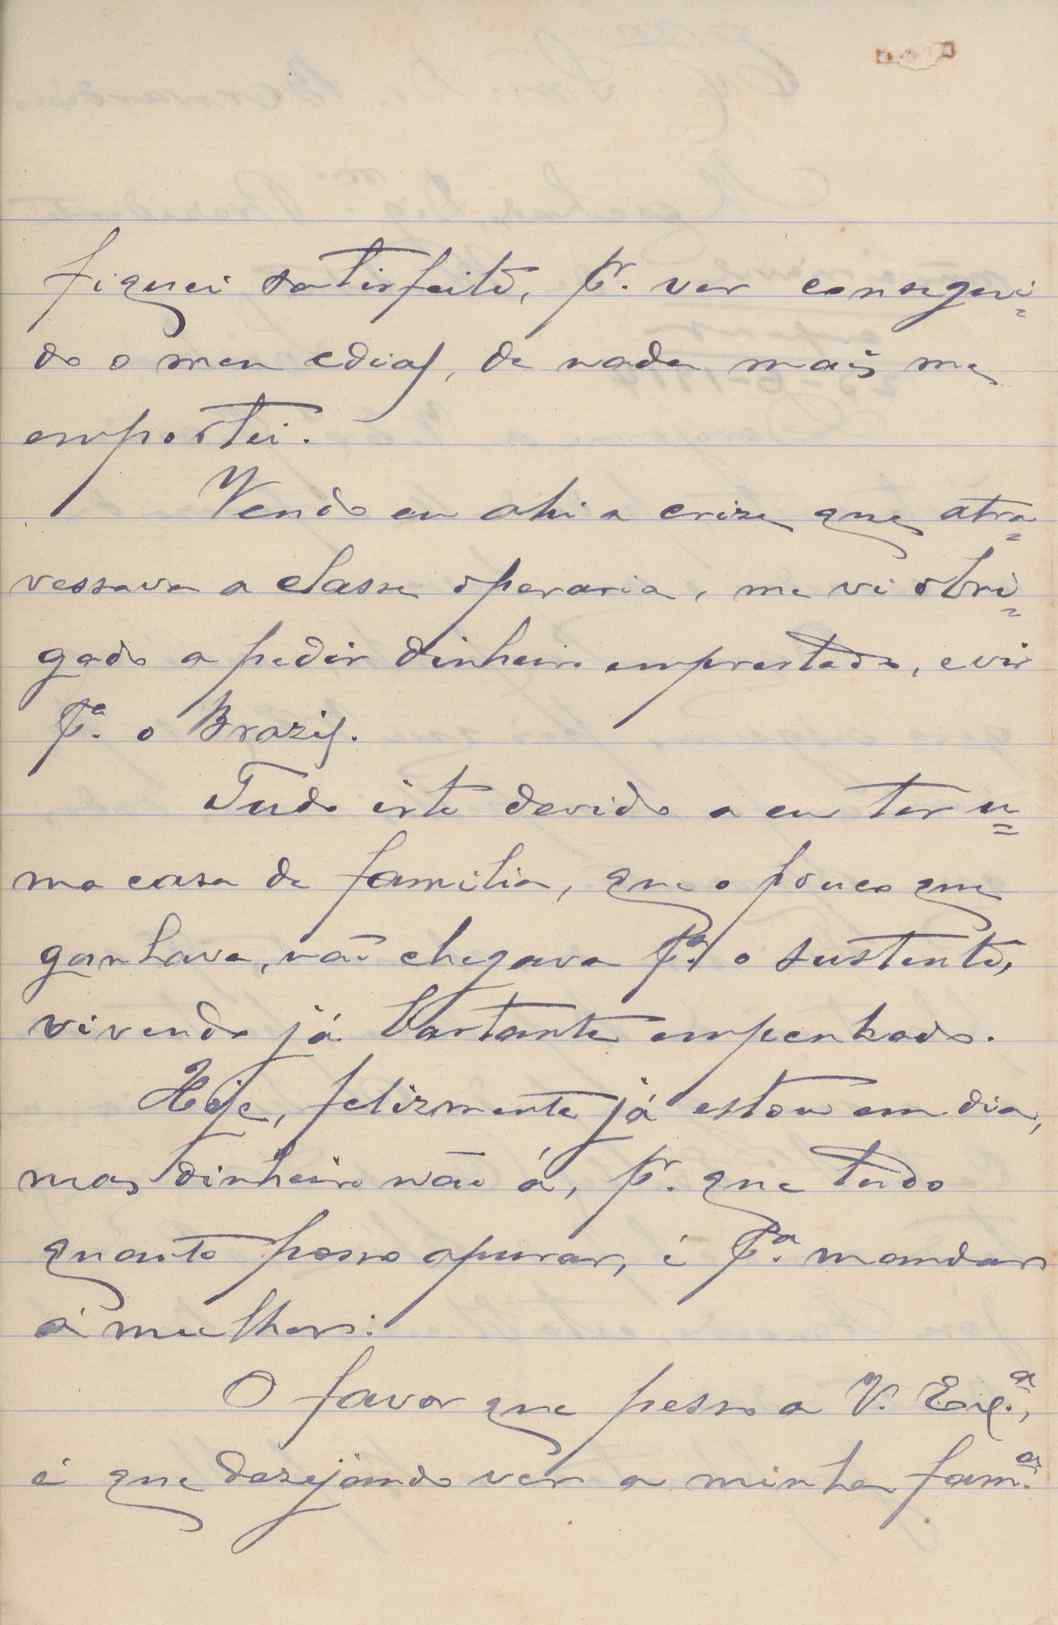 fiquei satisfeito, pr. ver consegui=
do o meu edial, de nada mais me
emportei.
Vendo eu ahi a crize que atra=
vessava a classe operaria, me vi obri=
gado a pedir dinheiro emprestado, e vir
pa. o Brazil.
Tudo isto devido a eu ter u=
ma casa de familia, que o pouco que
ganhava, não chegava pa. o sustento,
vivendo já bastante empenhado.
Hoje, felizmente já estou em dia,
mas dinheiro não á, pr. que tudo
quanto posso apurar, é pa. mandar
á mulher.
O favor que pesso a V. Exa.,
é que dezejando ver a minha fama.